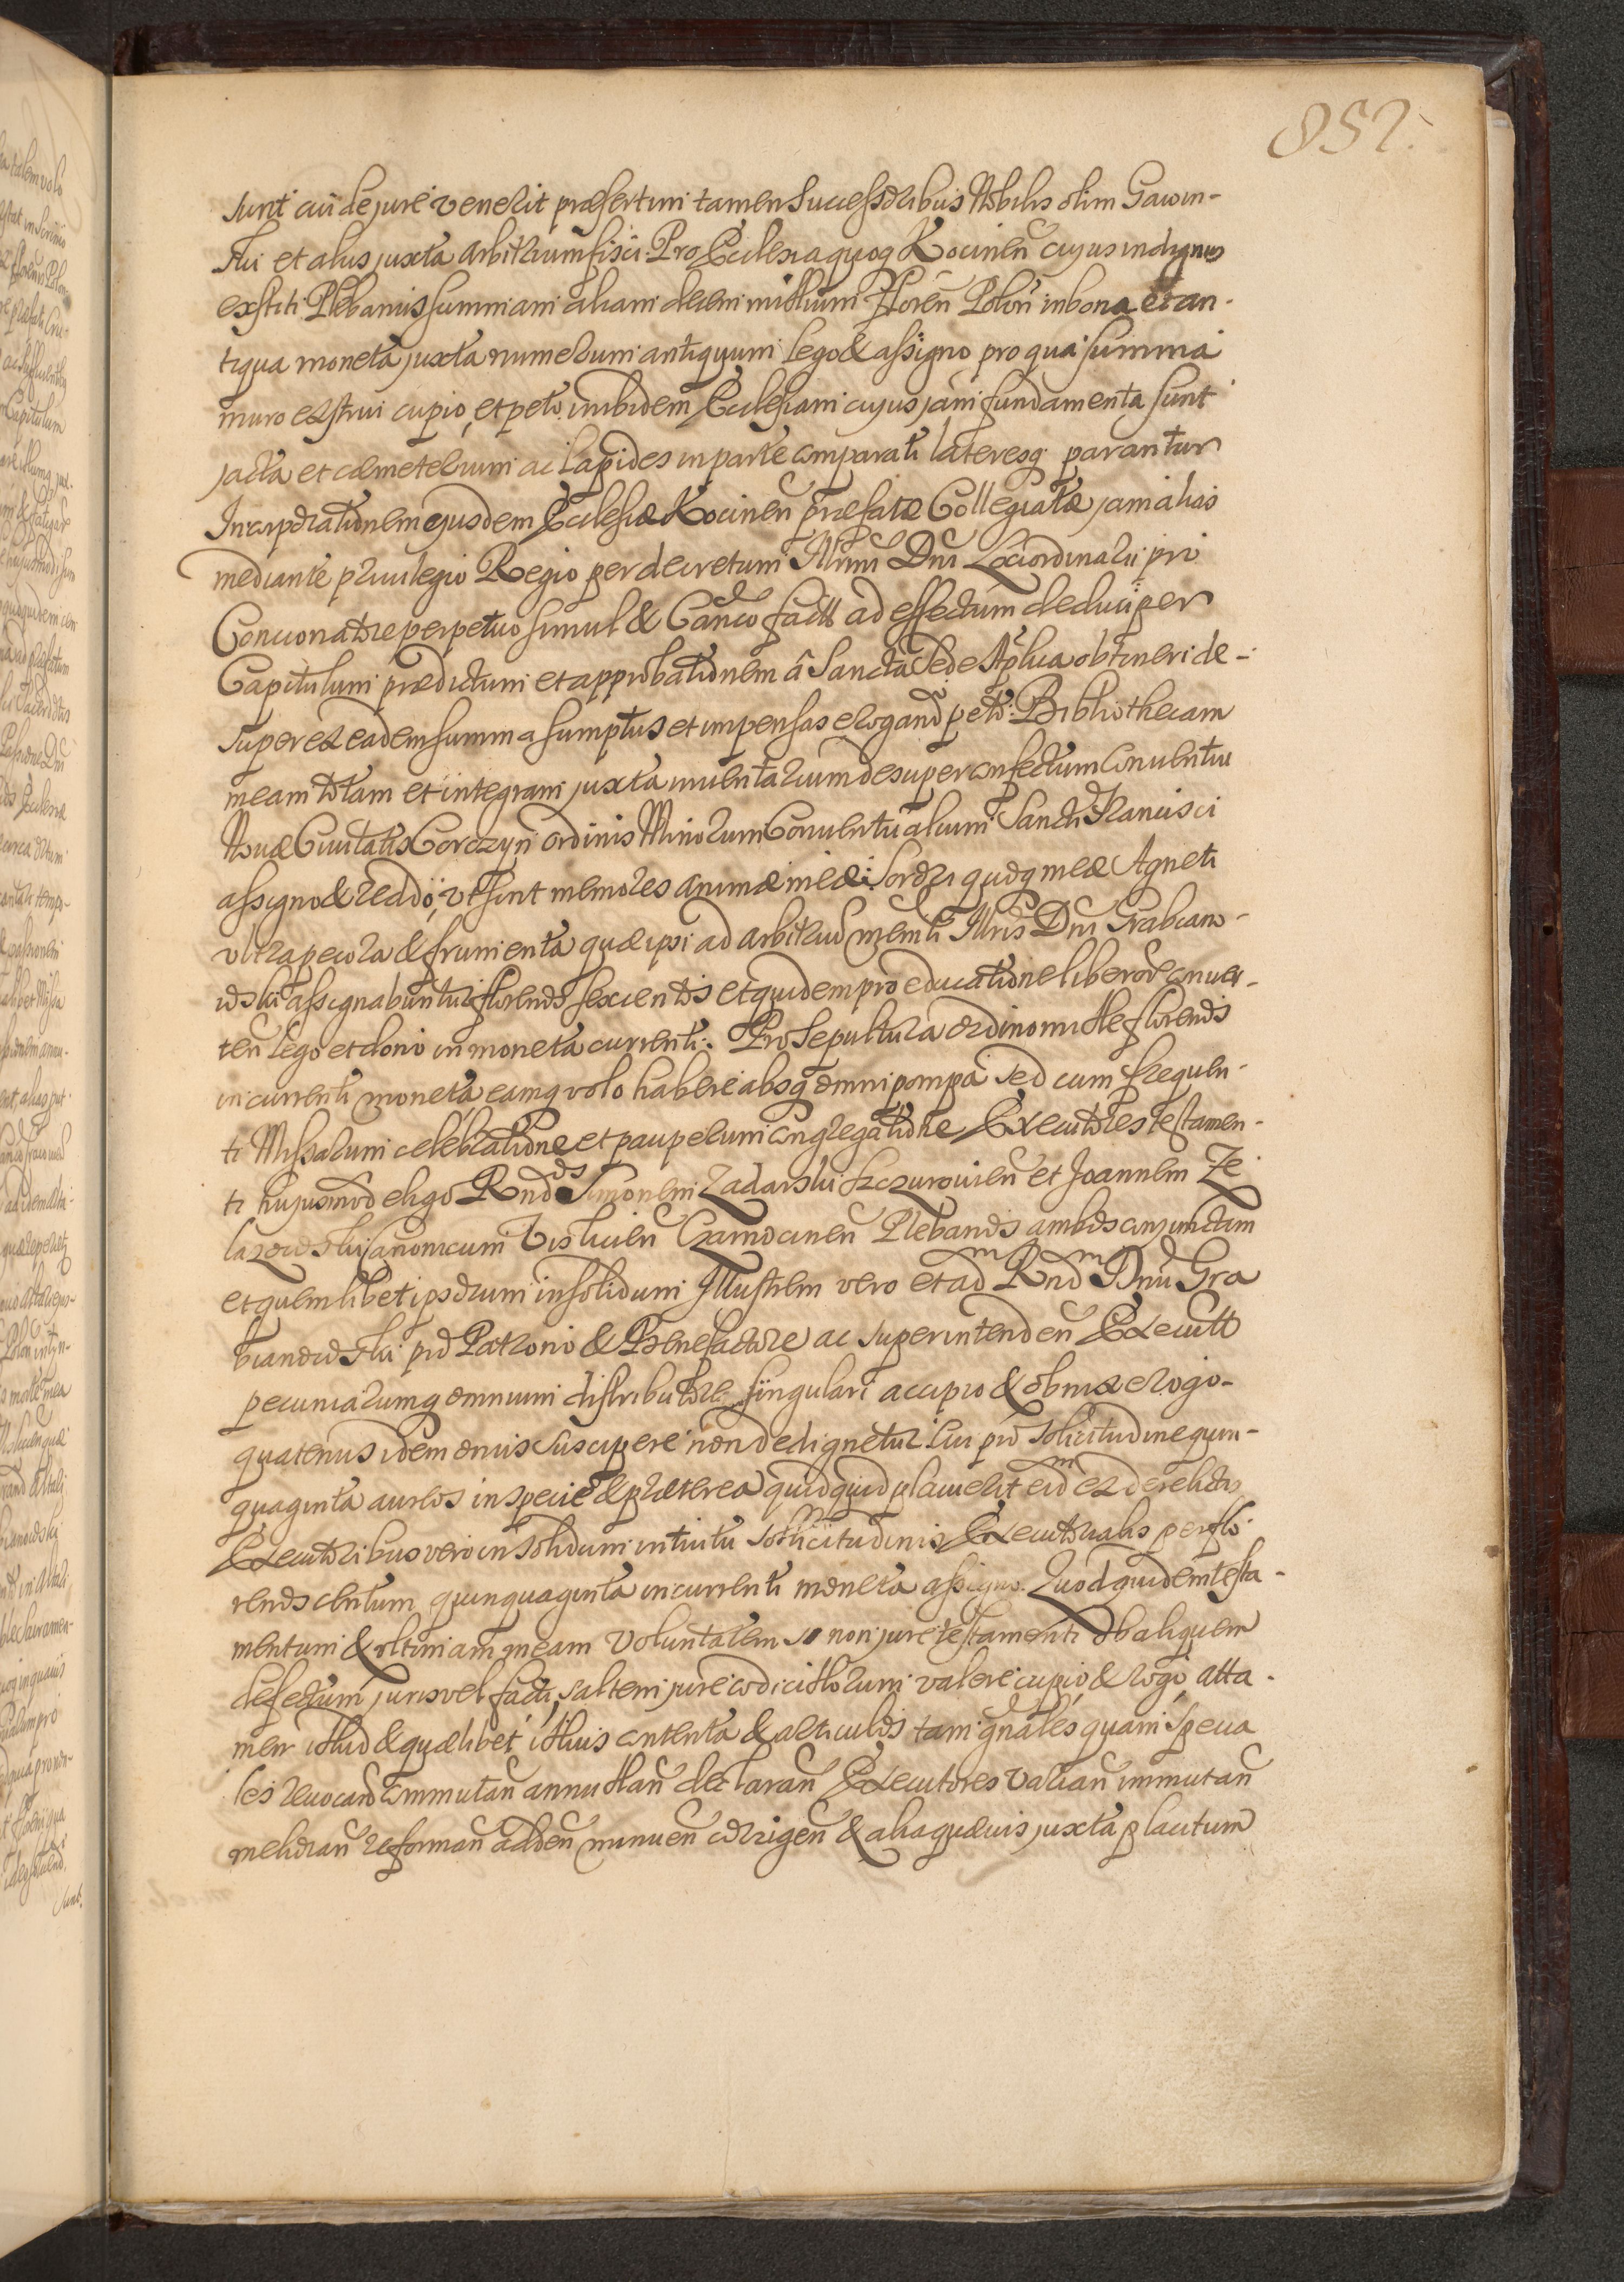 852.
sunt cui de jure venerit præsertim tamen Successoribus Nobilis olim Gawin-
ski et aliis juxta arbitrium fisci. Pro Ecclesia quoq Kocinen cujus indignus
exstiti Plebanus summam aliam decem millium Floren Polon in bona et an-
tiqua moneta juxta numerum antiquum lego & assigno pro qua summa
muro exstrui cupio, et peto inibidem Ecclesiam cujus jam fundamenta sunt
jacta et cæmeterium ac lapides in parte comparati lateresq parantur
Incorporationem ejusdem Ecclesiæ Kocinen præfatæ Collegiatæ jam alias
mediante privilegio Regio per decretum Illrmi Dni Loci ordinarii pro
Concionatore perpetuo simul & Canco factt ad effectum deduci per
Capitulum prædictum et approbationem â Sancta Sede Aplica obtineri de-
super ex eadem summa sumptus et impensas erogand peto. Bibliothecam
meam totam et integram juxta inventarium desuper confectum Conventui
Novæ Civitatis Corczyn ordinis Minorum Conventualium Sancti Francisci
assigno & reddo, vt sint memores animæ meæ: Sorori quoq meæ Agneti
vltra pecora & frumenta quæ ipsi ad arbitrium memti Illris Dni Grabiano-
wski assignabuntur florenos sexcentos et quidem pro educatione liberor conver-
ten lego et dono in moneta currenti. Pro Sepultura ordino mille florenos
in currenti moneta eamq volo habere absq omni pompa sed cum frequen-
ti Missarum celebratione et pauperum congregatione Executores testamen-
ti hujusmod eligo Rndos Simonem Zadarski Szczurovien et Joannem Ze
lazowski Canonicum Vislicien Czarnocinen Plebanos ambos conjunctim
et quemlibet ipsorum in solidum Illustrem vero et ad Rndm Dnum Gra
bianowski pro Patrono & Benefactore ac superintenden Executt
pecuniarumq omnium distributore singulari accipio & obnixe rogo-
quatenus idem onus suscipere non dedignetur cui pro solicitudine quin-
quaginta aureos in specie & præterea quidquid placuerit eidm ex derelictis
Executoribus vero in solidum intuitu sollicitudinis Executorialis per flo-
renos centum quinquaginta in currenti moneta assigno. Quod quidem testa-
mentum & vltimam meam voluntatem si non jure testamenti ob aliquem
defectum juris vel facti, saltem jure codicillorum valere cupio & rogo, atta-
men illud & quælibet illius contenta & articulos tam gnales quam specia
les revocand commutan annullan declaran Executores varian immutan
melioran reforman adden minuen corrigen & alia quævis juxta placitum